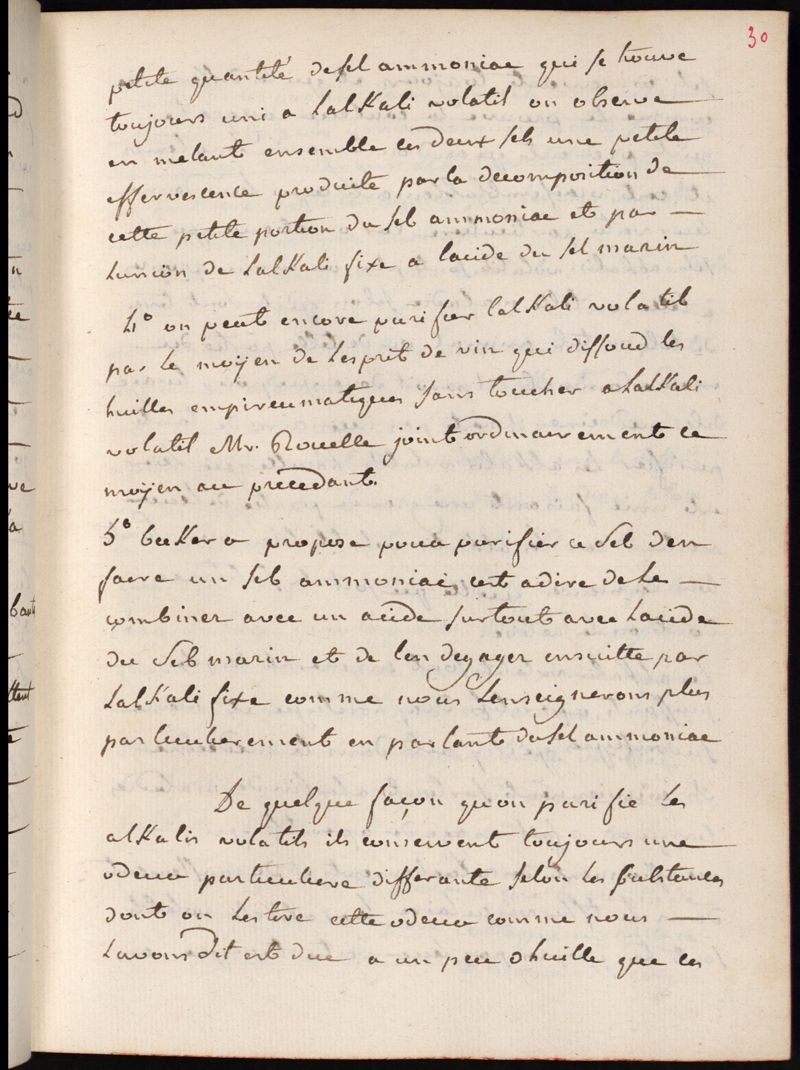 30
petite quantité de sel ammoniac qui se trouve
toujours uni a Lalkali volatil on observe
en melant ensemble ces deux sels une petite
effervescence produite par la decomposition de
cette petite portion du sel ammoniac et par
Lunion de Lalkali fixe a lacide du sel marin
4° on peut encore purifier lalkali volatil
par le moyen de Lesprit de vin qui dissoud les
huilles empireumatiques sans toucher a Lalkali
volatil Mr. Rouelle joint ordinairement ce
moyen au précedant.
5° beker a propose pour purifier ce sel den
faire un sel ammoniac cest adire de Le
combiner avec un acide surtout avec Lacide
du sel marin et de len degager ensuitte par
Lalkali fixe comme nous Lenseignerons plus
particulierement en parlant du sel ammoniac
De quelque façon quon purifie les
alkalis volatils ils conservent toujours une
odeur particuliere differante selon les substances
dont on Les tire cette odeur comme nous
Lavons dit est due a un peu dhuille que ces